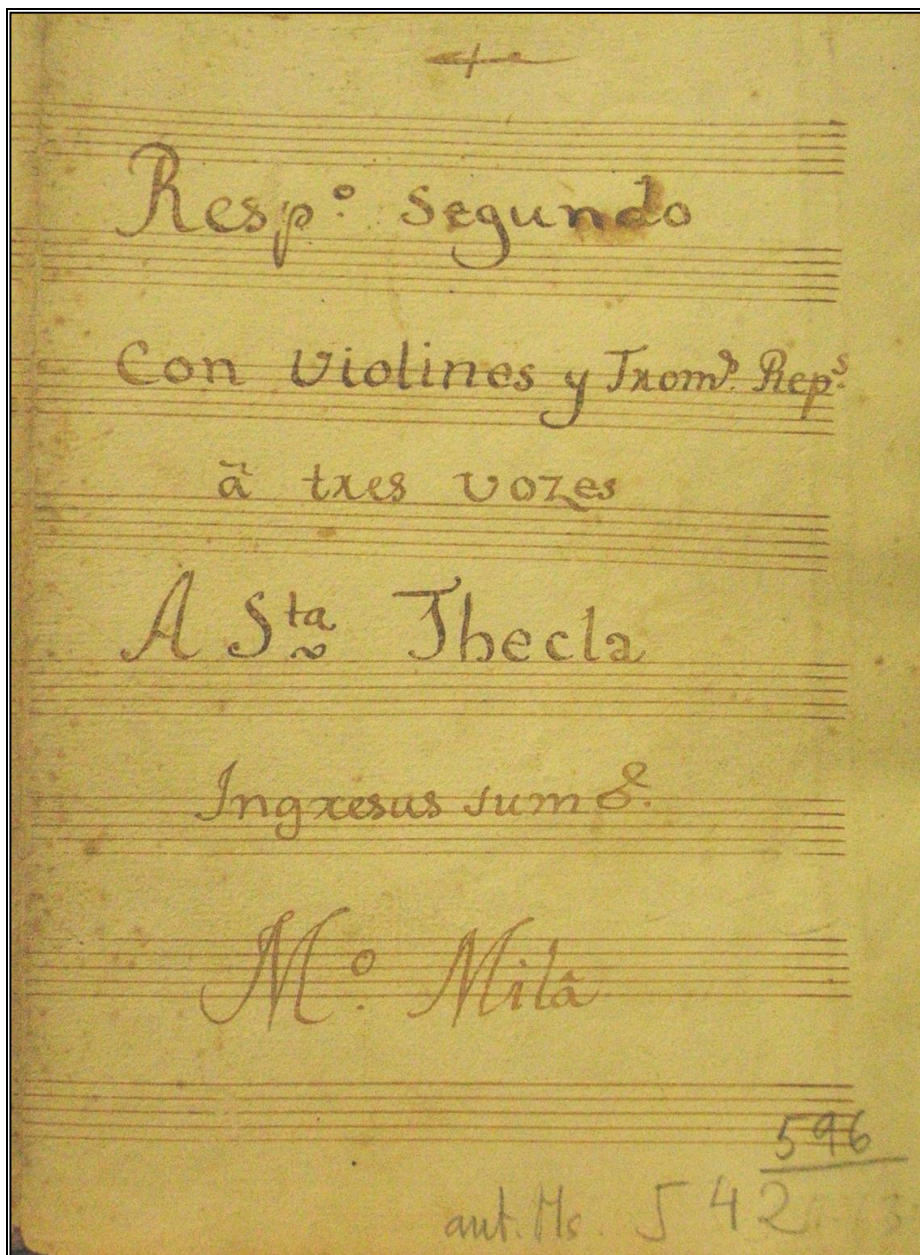 Resp.º Segundo
Con Violines y Trom.s Rep.s
â tres vozes
A S.ta Thecla
Ingresus sum &.
M.º Milà
596
ant. Ms. 542